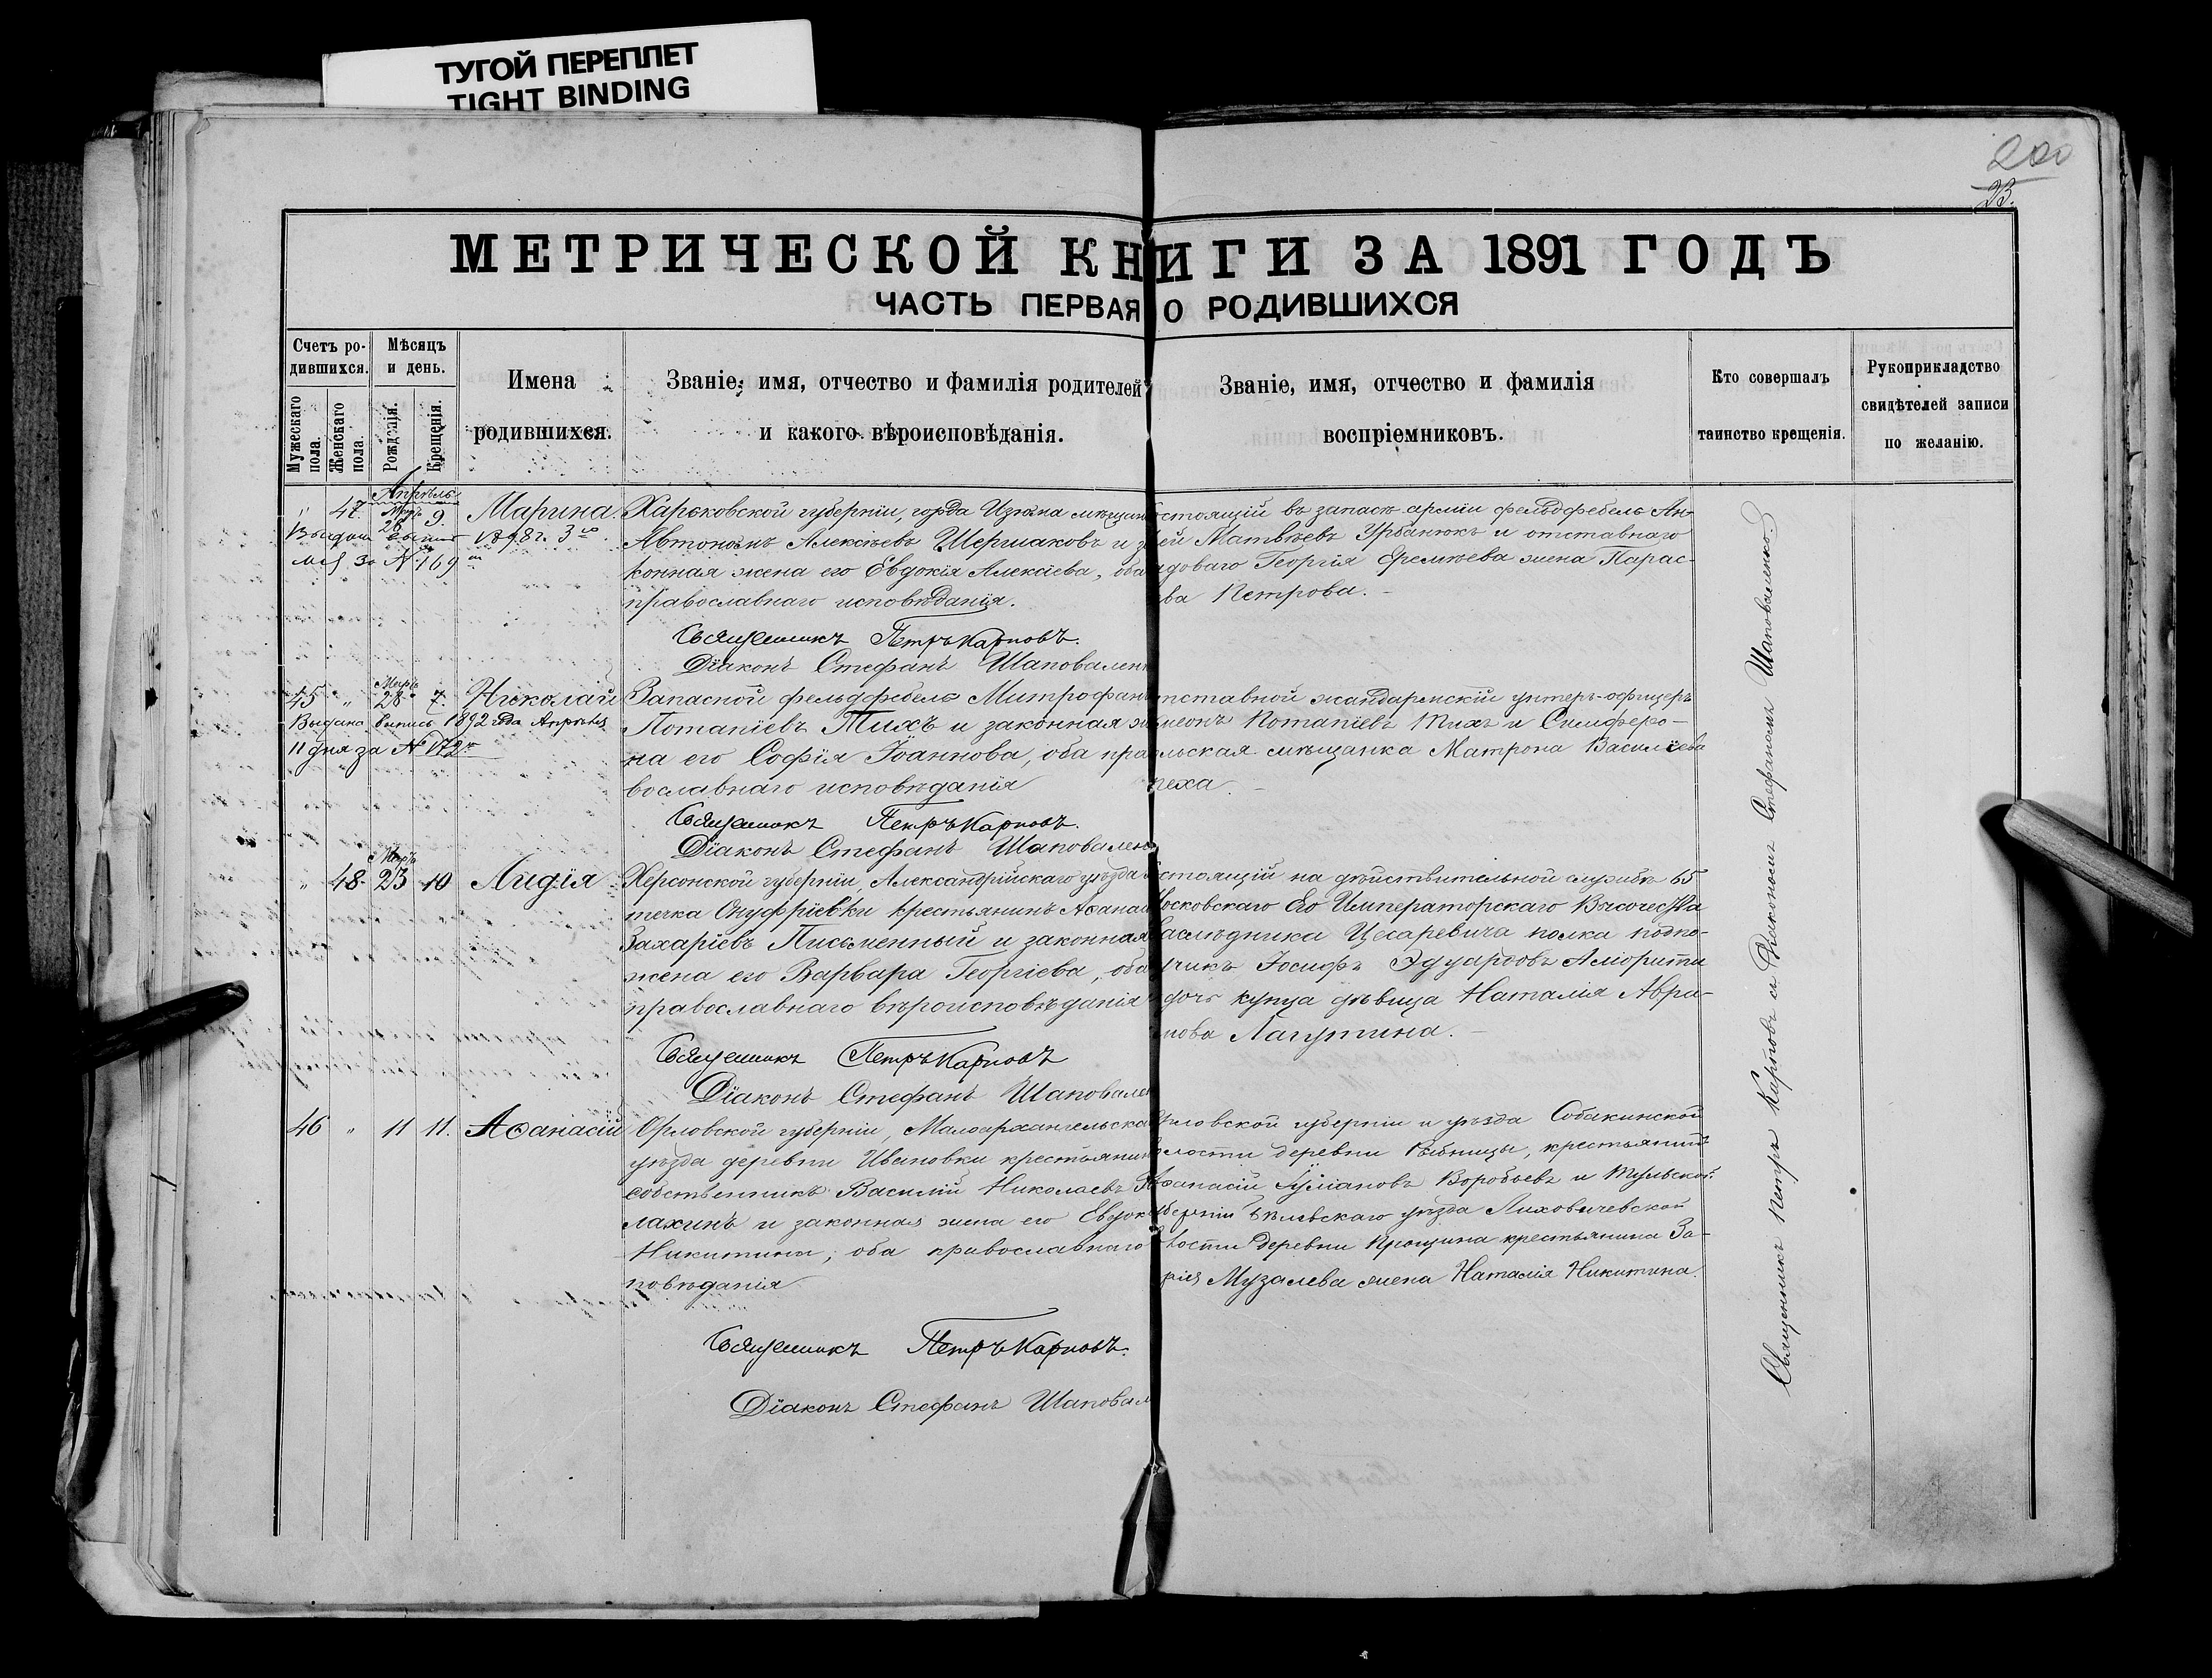 ТУГОЙ ПЕРЕПЛЕТ
TIGHT BINDING
200
23.
МЕТРИЧЕСКОЙ КНИГИ ЗА 1891 ГОДЪ
ЧАСТЬ ПЕРВАЯ О РОДИВШИХСЯ
Счетъ ро-
дившихся.
Мужескаго пола.
Женскаго пола.
Мѣсяцъ
и день.
Рожденія.
Крещенія.
Имена
родившихся.
Званіе, имя, отчество и фамилія родителей
и какого вѣроисповѣданія.
Званіе, имя, отчество и фамилія
воспріемниковъ.
Кто совершалъ
таинство крещенія.
Рукоприкладство
свидѣтелей записи
по желанію.
Апрѣль
" 47. Мартъ 28 9. Марина.
1898 г. 3го
за № 169
Харьковской губерніи, города Изюма мѣщан
Автономъ Алексѣевъ Шермаковъ и за
конная жена его Евдокія Алексіева, оба
православнаго исповѣданія.
Священникъ Петръ Карповъ.
Діаконъ Стефанъ Шаповален
стоящій въ запасѣ арміи фельдфебель Ан-
ей Матвѣевъ Урбанюкъ и отставнаго
ядоваго Георгія Еремѣева жена Парас-
ва Петрова.
45 " Мартъ 28 7. Николай
Выдана выпись 1892 года Апрѣля
11 дня за № 172
Запасной фельдфебель Митрофан
Потапіевъ Тихъ и законная же
на его Софія Іоаннова, оба пра
вославнаго исповѣданія
Священникъ Петръ Карповъ.
Діаконъ Стефанъ Шаповален
тставной жандармскій унтеръ-офицеръ
меонъ Потапіевъ Тихъ и Симферо-
льская мѣщанка Матрона Василіева
пеха.
" 48. Мартъ 23 10 Лидія
Херсонской губерніи, Александрійскаго уѣзда
течка Онуфріевки крестьянинъ Аѳанас
Захаріевъ Письменный и законная
жена его Варвара Георгіева, оба
православнаго вѣроисповѣданія
Священникъ Петръ Карповъ
Діаконъ Стефанъ Шаповален
стоящій на дѣйствительной службѣ 65
Московскаго Его Императорскаго Высочества
Наслѣдника Цесаревича полка подпо-
учикъ Іосифъ Эдуардовъ
дочь купца дѣвица Наталія Авра-
мова Лапутина.
46 " 11 11. Аѳанасій
Орловской губерніи, Малоархангельска
уѣзда деревни Ивановки крестьянин
собственникъ Василій Николаевъ
лахинъ и законная жена его Евдок
Никитина, оба православнаго
повѣданія
Священникъ Петръ Карповъ.
Діаконъ Стефанъ Шаповал
Орловской губерніи и уѣзда Собакинской
лости деревни Рыбницы, крестьянинъ
Аѳанасій Іуліановъ Воробьевъ и Тульской
берніи Бѣлевскаго уѣзда
лости деревни крестьянина За-
рія Музалева жена Наталія Никитина.
Священникъ Петръ Карповъ съ Діакономъ Стефаномъ Шаповаленко.